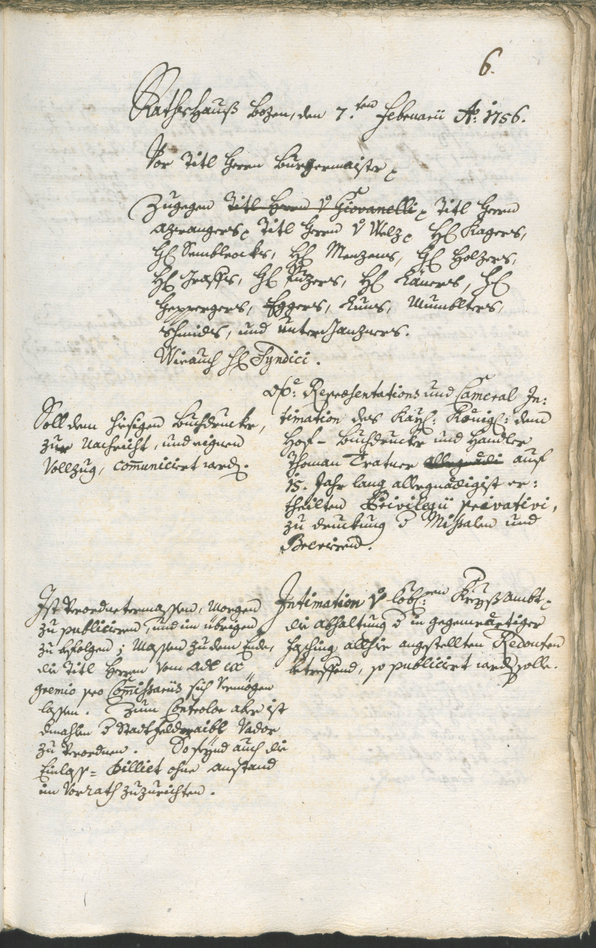 6.
Rathshauß Bozen, den 7.ten Februarii Ao: 1756.
Vor Titl Herrn Burgermaister
Zugegen Titl Herrn v Giovanelli, Titl Herrn
Azwangers, Titl Herrn v Welz, H: Kagers,
H: Sembleocks, H: Menzens, H: Holzers,
H: Grasss, H: Puzers, H: Kauers, H:
Gepergers, Eggers, Kuns, Mumblters,
Schmids, und Unterganzners.
Wie auch H: Syndici.
Soll dem hiesigen Buchdrucker,
zur Nachricht, und eignen
Vollzug, communiciert werden.
Representations und Cameral In=
timation das Kayl: Königl: dem
Hof= Buchdrucker und Handler
Thoman Tratner auf
15. Jahr lang allergnädigist er=
theilten Privilegii privativi,
zu druckung d Missalen und
Brevieren.
Ist Verordnetermassen, morgen
zu publicieren, und im übrigen
zu befolgen; Massen zu dem Ende,
die Titl Herren vom Adl ex
gremio pro Commissariis sich vermögen
lassen. Zum Controlor aber ist
dermahlen d Stadt
zu verordnen. So seynd auch die
Einlass= Billiet ohne anstand
im Vorrath zuzurichten.
Intimation v löbl:en Kreyßambt
die abhaltung d in gegenwärtiger
Fasching allhir angestellten Redouten
betreffend, so publiciert werden solle.